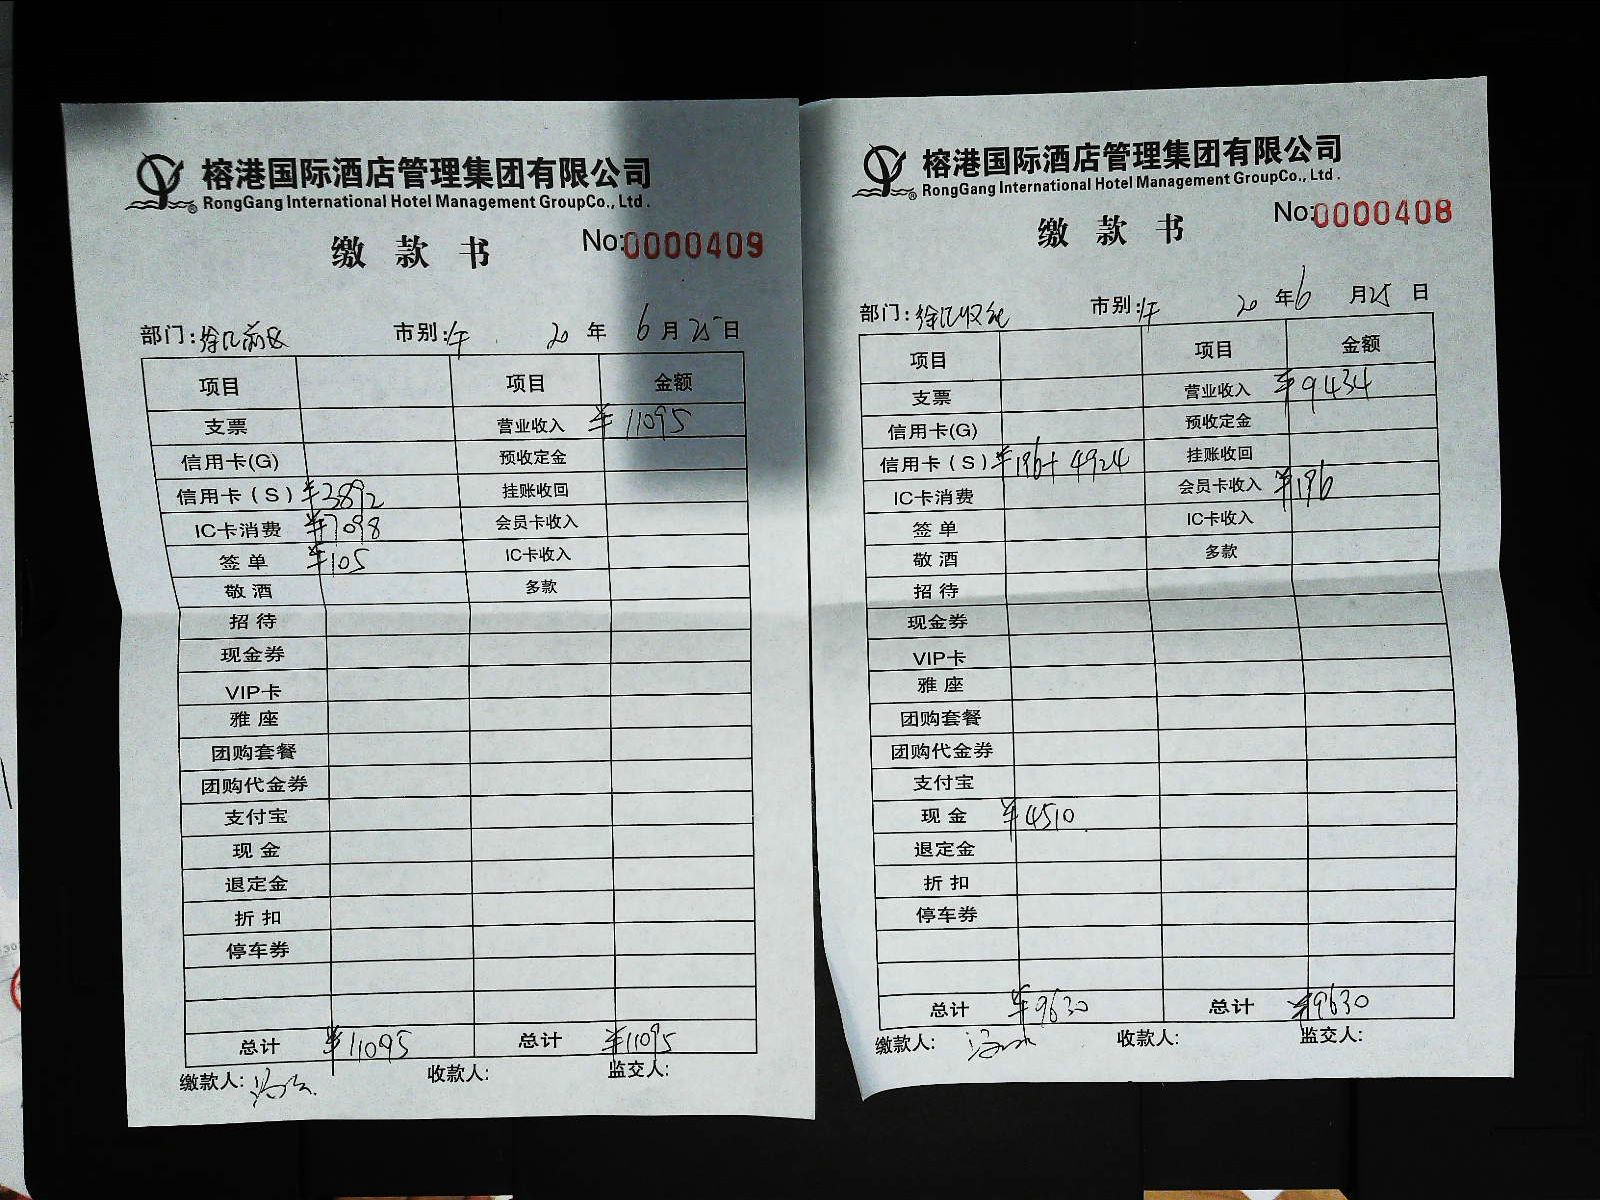 榕港国际酒店管理集团有限公司
RongGang International Hotel Management GroupCo., Ltd.
缴款书 No:0000409
部门: 市别:午 20年6月25日
项目 项目 金额
支票 营业收入 ¥11095
信用卡(G) 预收定金
信用卡(S) ¥3892 挂账收回
IC卡消费 ¥7098 会员卡收入
签单 ¥105 IC卡收入
敬酒 多款
招待
现金券
VIP卡
雅座
团购套餐
团购代金券
支付宝
现金
退定金
折扣
停车券
总计 ¥11095 总计 ¥11095
缴款人: 收款人: 监交人:
榕港国际酒店管理集团有限公司
RongGang International Hotel Management GroupCo., Ltd.
缴款书 No:0000408
部门: 市别:午 20年6月25日
项目 项目 金额
支票 营业收入 ¥9434
信用卡(G) 预收定金
信用卡(S) ¥196+4924 挂账收回
IC卡消费 会员卡收入 ¥196
签单 IC卡收入
敬酒 多款
招待
现金券
VIP卡
雅座
团购套餐
团购代金券
支付宝
现金 ¥4510
退定金
折扣
停车券
总计 ¥9630 总计 ¥9630
缴款人: 收款人: 监交人: